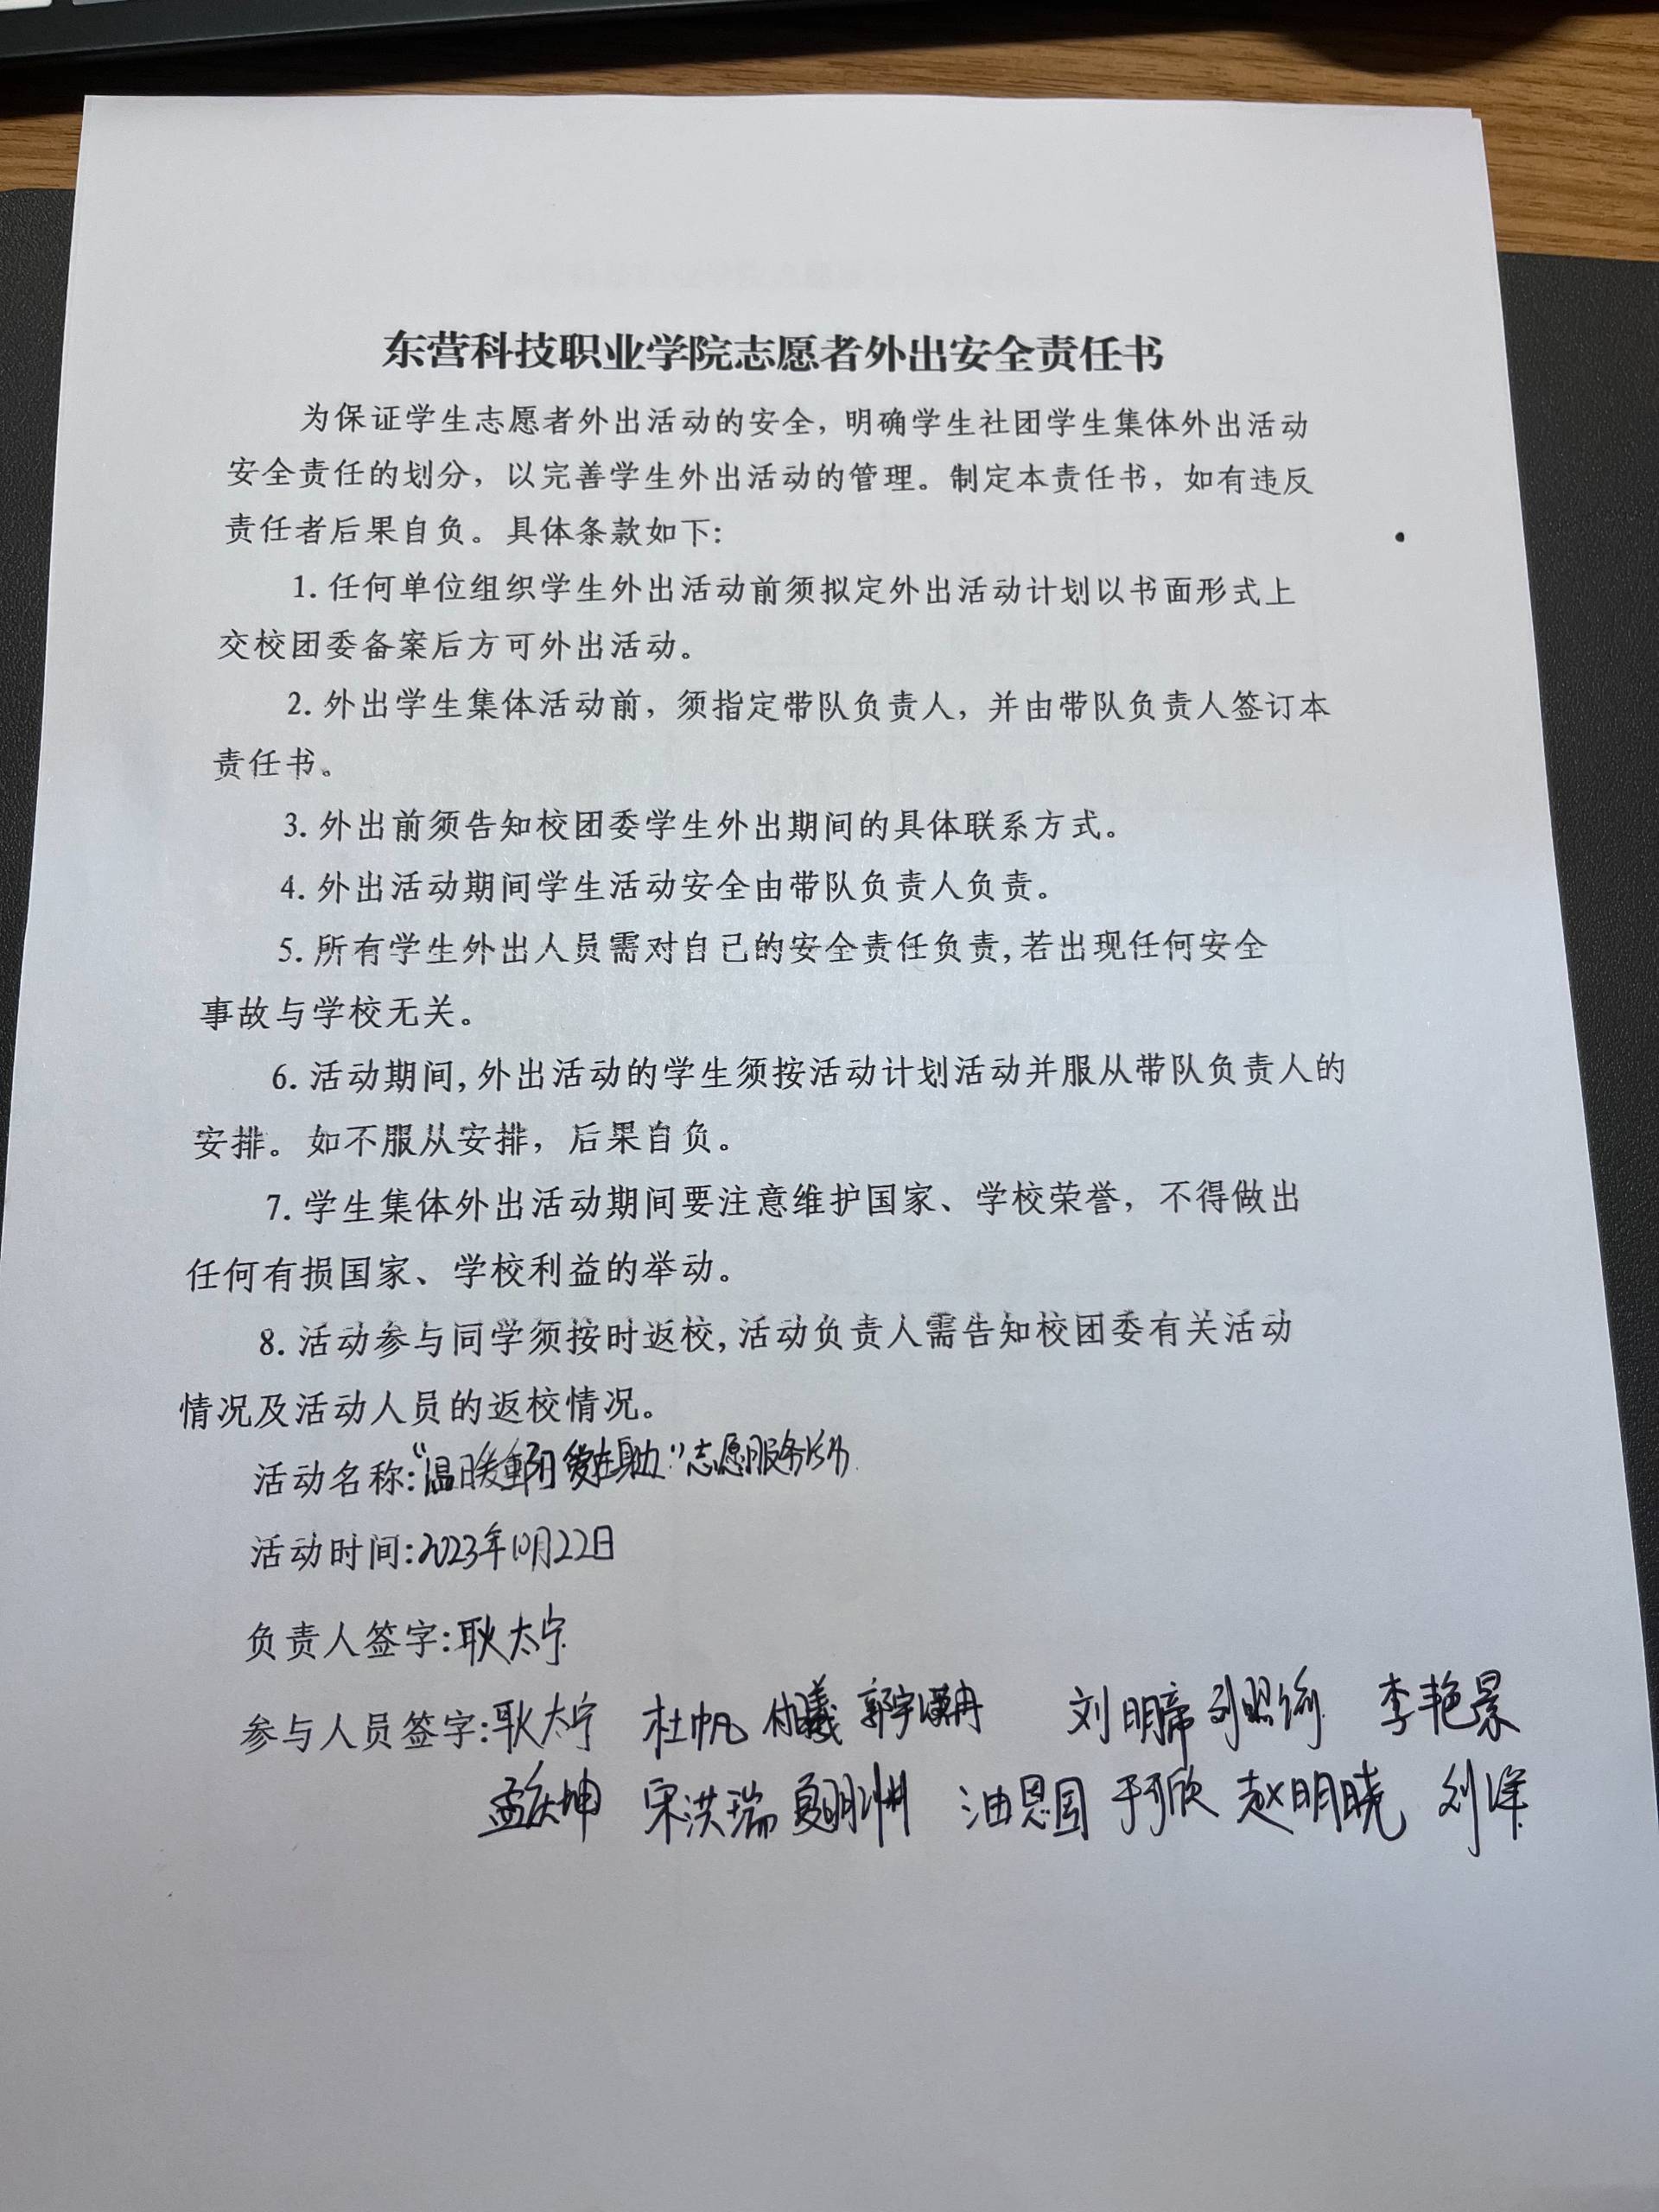 东营科技职业学院志愿者外出安全责任书
为保证学生志愿者外出活动的安全，明确学生社团学生集体外出活动
安全责任的划分，以完善学生外出活动的管理。制定本责任书，如有违反
责任者后果自负。具体条款如下：
1. 任何单位组织学生外出活动前须拟定外出活动计划以书面形式上
交校团委备案后方可外出活动。
2. 外出学生集体活动前，须指定带队负责人，并由带队负责人签订本
责任书。
3. 外出前须告知校团委学生外出期间的具体联系方式。
4. 外出活动期间学生活动安全由带队负责人负责。
5. 所有学生外出人员需对自己的安全责任负责,若出现任何安全
事故与学校无关。
6. 活动期间,外出活动的学生须按活动计划活动并服从带队负责人的
安排。如不服从安排，后果自负。
7. 学生集体外出活动期间要注意维护国家、学校荣誉，不得做出
任何有损国家、学校利益的举动。
8. 活动参与同学须按时返校,活动负责人需告知校团委有关活动
情况及活动人员的返校情况。
活动名称:“温暖重阳 爱在身边”志愿服务活动
活动时间:2023年10月22日
负责人签字:耿太宁
参与人员签字:耿太宁 杜帆 刘明帝 李艳景
孟庆坤 宋洪瑞 油恩国 于可欣 赵明晓